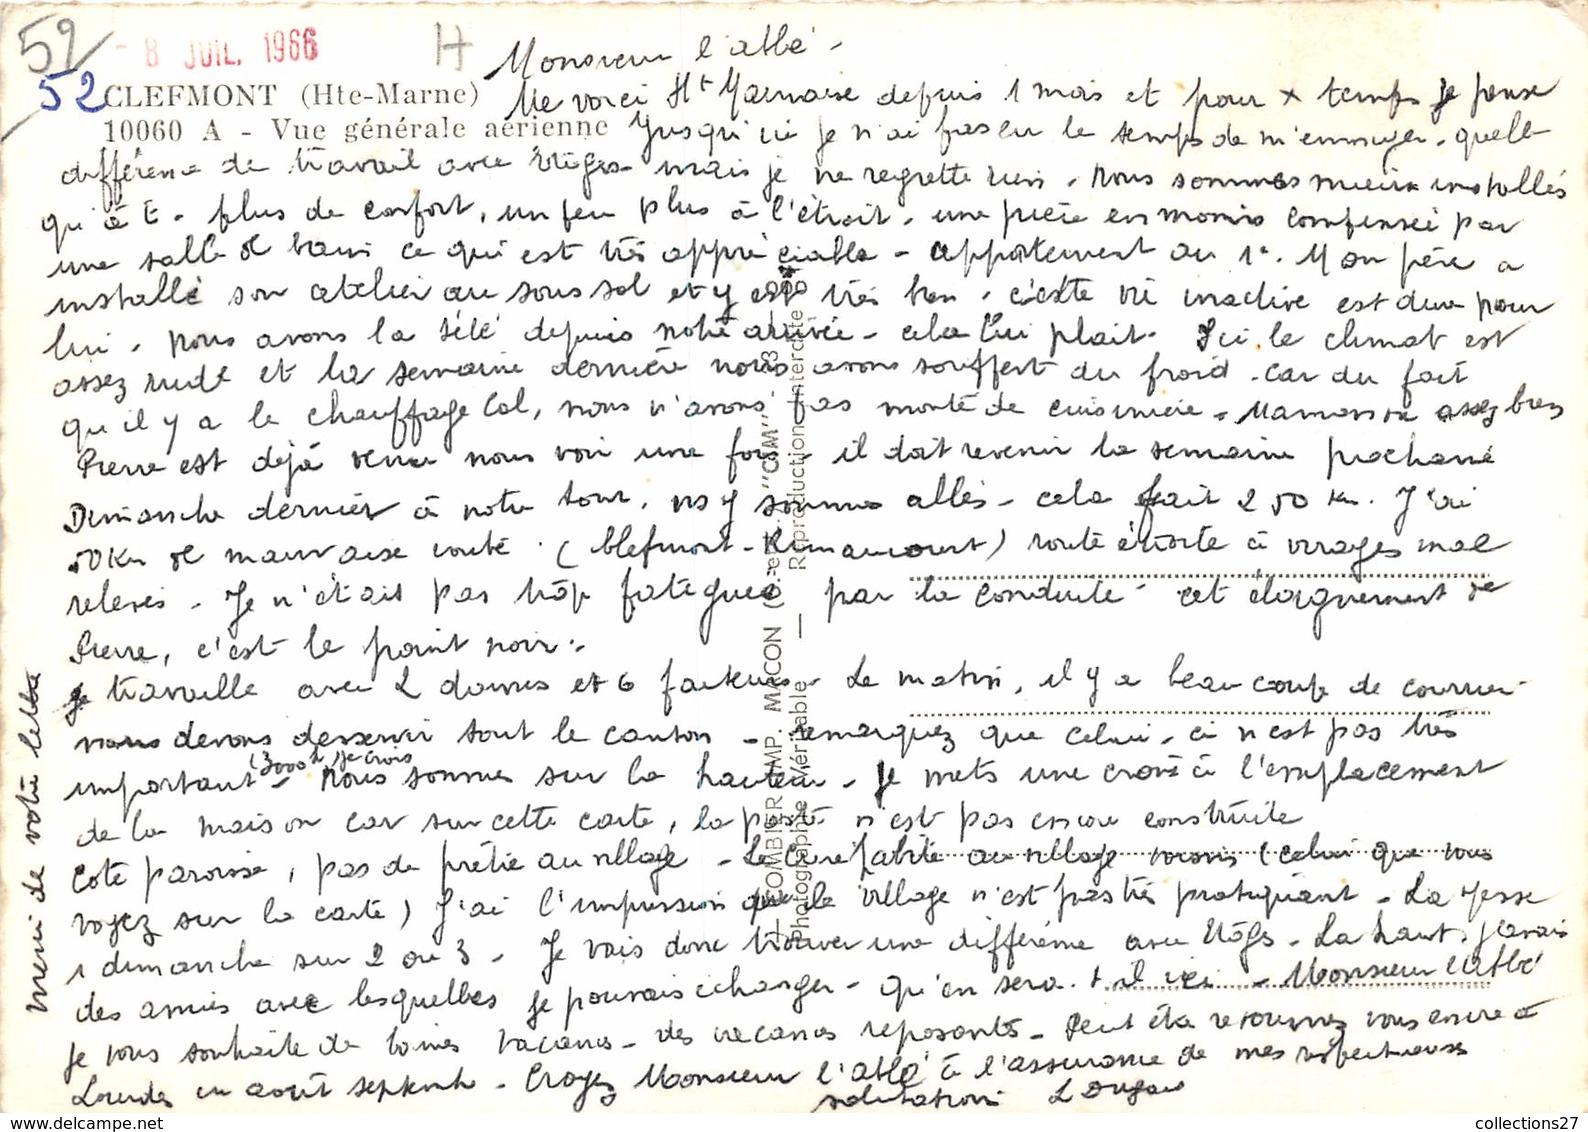 52
- 8 JUIL. 1966
H
52
CLEFMONT (Hte-Marne)
10060 A - Vue générale aérienne
Monsieur l'abbé -
Me voici Ht Marnaise depuis 1 mois et pour x temps je pense
Jusqu'ici je n'ai pas eu le temps de m'ennuyer. quelle
différence de travail avec mais je ne regrette rien. Nous sommes mieux installés
qu'à E. plus de confort, un peu plus à l'étroit. une pièce en moins compensée par
une salle de bains ce qui est très appréciable - appartement au 1°. Mon père a
installé son atelier au sous sol et y est très bien. cette vie inactive est dure pour
lui. nous avons la télé depuis notre arrivée - cela lui plait. Ici le climat est
assez rude et la semaine dernière nous avons souffert du froid. Car du fait
qu'il y a le chauffage Cal, nous n'avons pas monté de cuisinière - Maman va assez bien
Pierre est déjà venu nous voir une fois, il doit revenir la semaine prochaine
Dimanche dernier à notre tour, ns y sommes allés - cela fait 250 Km. J'ai
50 Km de mauvaise route. (Clefmont - Rimaucourt) route étroite à virages mal
relevés - Je n'étais pas trop fatiguée par la conduite - cet éloignement de
Pierre, c'est le point noir.
Je travaille avec 2 dames et 6 facteurs - Le matin, il y a beaucoup de courrier
nous devons desservir tout le canton - remarquez que celui-ci n'est pas très
important - (3000 h je crois) Nous sommes sur la hauteur - Je mets une croix à l'emplacement
de la maison car sur cette carte, la poste n'est pas encore construite
Coté paroisse, pas de prêtre au village - Le Curé habite au village voisin (celui que vous
voyez sur la carte) J'ai l'impression que le village n'est pas très pratiquant - La Messe
1 dimanche sur 2 ou 3 - Je vais donc trouver une différence avec - La haut, j'avais
des amies avec lesquelles je pouvais échanger - qu'en sera-t-il ici - Monsieur l'Abbé
je vous souhaite de bonnes vacances - des vacances reposantes - Peut être retournez vous encore à
Lourdes en août septembre - Croyez Monsieur l'abbé à l'assurance de mes respectueuses
salutations
merci de votre lettre
COMBIER IMP. MACON "CIM"
Photographie Véritable — Reproduction Interdite
collections27